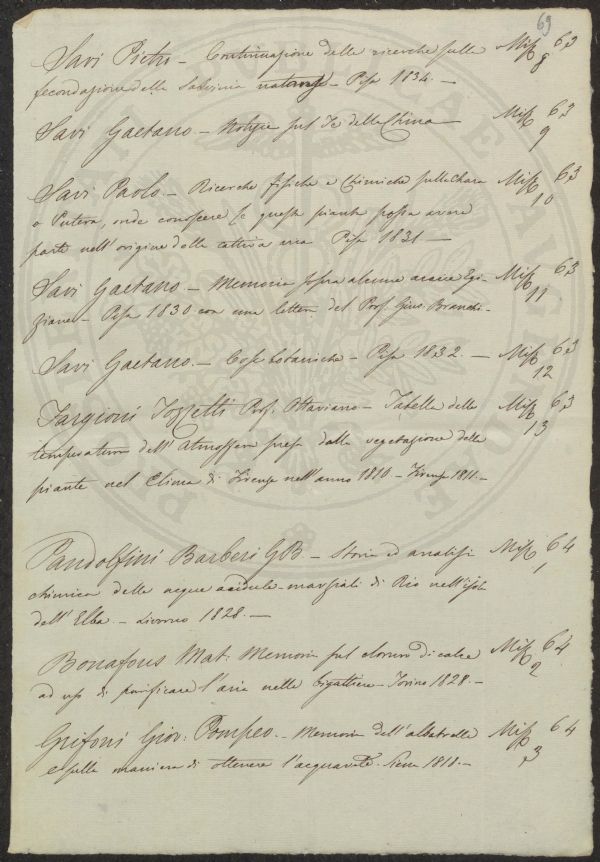 69
Savi Pietro - Continuazione delle ricerche sulla Miss 63
fecondazione della Salvinia natans - Pisa 1834. - 8
Savi Gaetano - Notizie sul Te della China Miss 63
9
Savi Paolo. - Ricerche fisiche e Chimiche sulla Chara Miss 63
o Putera, onde conoscere se questa pianta possa avere 10
parte nell'origine della cattiva aria Pisa 1831 -
Savi Gaetano - Memoria sopra alcune acacie Egi- Miss 63
ziane - Pisa 1830 con una lettera del Prof. Gius. Branchi - 11
Savi Gaetano. - Cose botaniche - Pisa 1832. - Miss 63
12
Targioni Tozzetti Prof. Ottaviano - Tabella della Miss 63
temperatura dell'Atmosfera presa dalla vegetazione delle 13
piante nel Clima di Firenze nell'anno 1810 - Firenze 1811. -
Pandolfini Barberi GB - Storia ed analisi Miss 64
chimica delle acque acidule-marziali di Rio nell'isola 1
dell'Elba. - Livorno 1828. -
Bonafous Mat: Memoria sul cloruro di calce Miss 64
ad uso di purificare l'aria nelle bigattiere - Torino 1828. - 2
Grifoni Giov: Pompeo. - Memoria dell'albatrello Miss 64
e sulla maniera di ottenere l'acquavite. Siena 1818. - 3